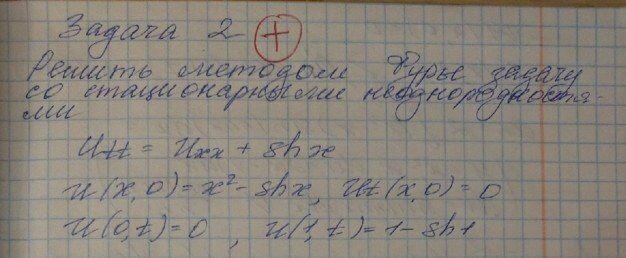 Задача 2 +
Решить методом Фурье задачу
со стационарными неоднородностя-
ми
Utt = Uxx + shx
u(x,0)=x²-shx, Ut(x,0)=0
u(0,t)=0, u(1,t)=1-sh1